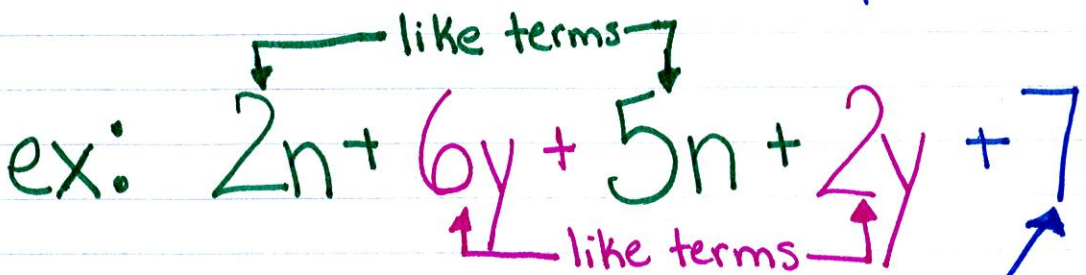 like terms
ex: 2n + 6y + 5n + 2y + 7
like terms